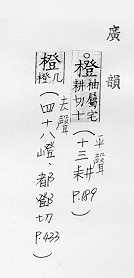 廣韻
○橙 柚屬宅耕切十 (平聲十三耕) P.189
橙 几橙 (去聲四十八嶝、都鄧切) P.433